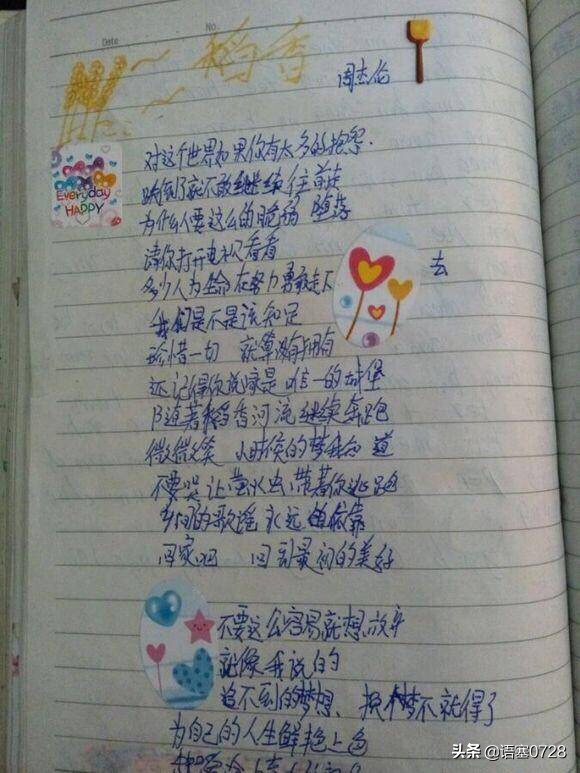 Date
No.
稻香
周杰伦
对这个世界如果你有太多的抱怨.
跌倒了就不敢继续往前走
为什么人要这么的脆弱 堕落
Everyday
HAPPY
请你打开电视看看
多少人为生命在努力勇敢走下去
我们是不是该知足
珍惜一切 就算没有拥有
还记得你说家是唯一的城堡
随著稻香河流继续奔跑
微微笑 小时侯的梦我知道
不要哭让萤火虫带著你逃跑
乡间的歌谣永远的依靠
回家吧 回到最初的美好
不要这么容易就想放弃
就像我说的
追不到的梦想、换个梦不就得了
为自己的人生鲜艳上色
头条 @语塞0728